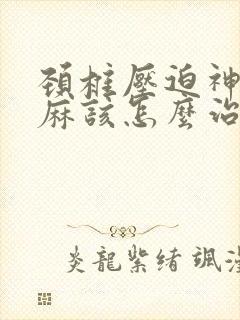 頚椎壓迫神
麻該怎麼治
炎龍紫緒 颯漫